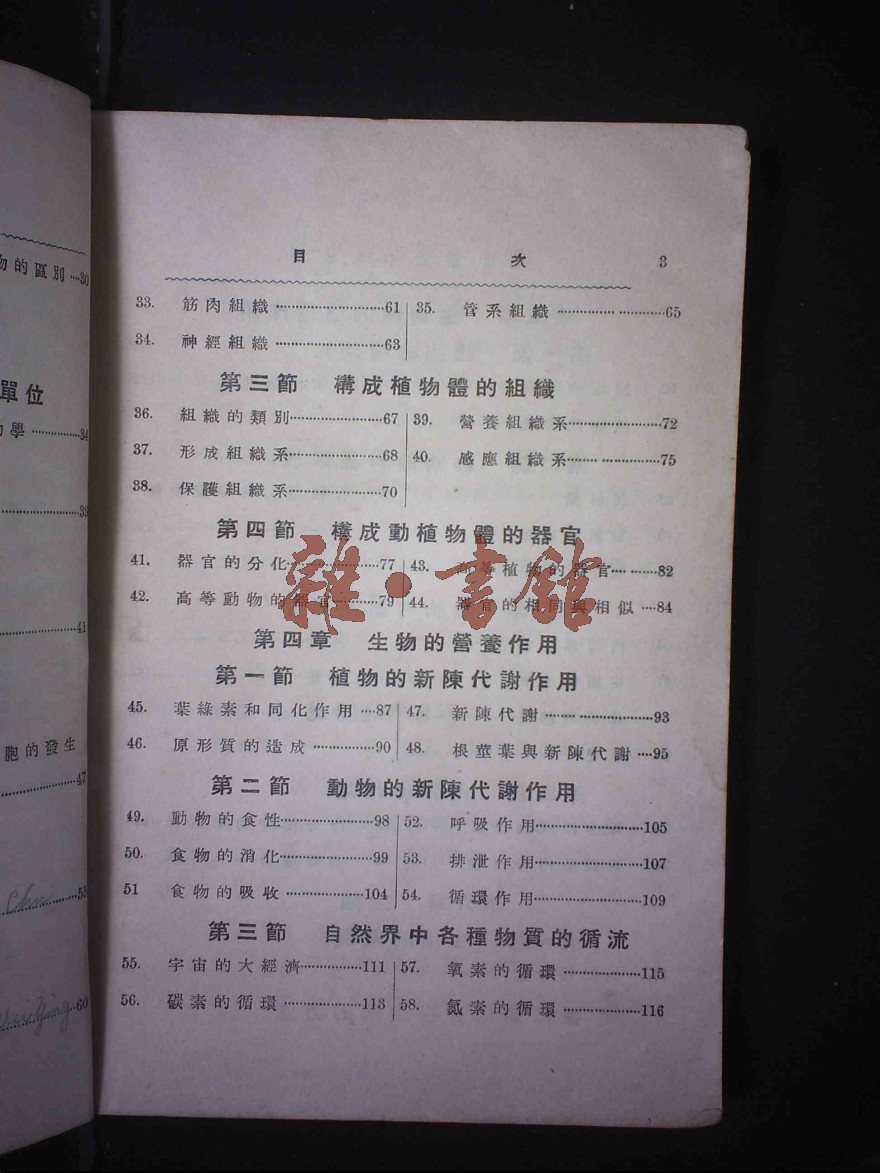 目 次 3
33. 筋肉組織 ……61 35. 管系組織 ……65
34. 神經組織 ……63
第三節 構成植物體的組織
36. 組織的類別……67 39. 營養組織系……72
37. 形成組織系……68 40. 感應組織系……75
38. 保護組織系……70
第四節 構成動植物體的器官
41. 器官的分化……77 43. 高等植物的器官……82
42. 高等動物的器官……79 44. 器官的相同與相似……84
雜·書館
第四章 生物的營養作用
第一節 植物的新陳代謝作用
45. 葉綠素和同化作用……87 47. 新陳代謝……93
46. 原形質的造成……90 48. 根莖葉與新陳代謝……95
第二節 動物的新陳代謝作用
49. 動物的食性……98 52. 呼吸作用……105
50. 食物的消化……99 53. 排泄作用……107
51 食物的吸收……104 54. 循環作用……109
第三節 自然界中各種物質的循流
55. 宇宙的大經濟……111 57. 氧素的循環……115
56. 碳素的循環……113 58. 氮素的循環……116
物的區別……30
單位
學……34
39
41
胞的發生
47
60